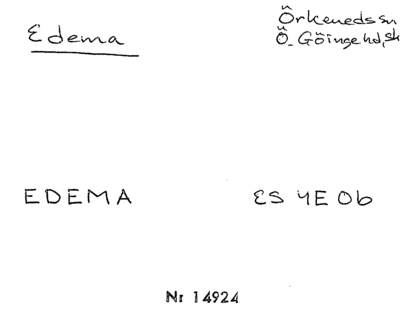 Edema
Örkeneds sn
Ö. Göinge hd, sk
EDEMA
ES 4E 0b
Nr 14924